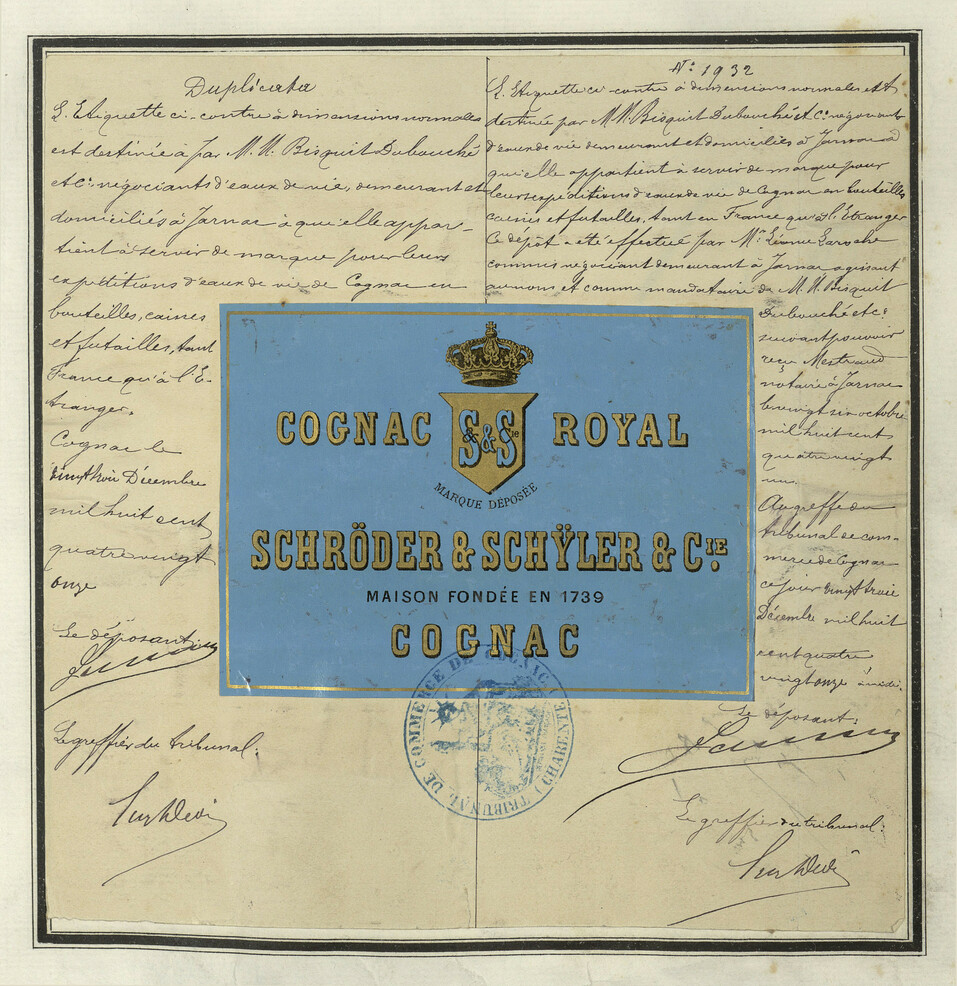 Duplicata
L'Etiquette ci-contre à dimensions normales
est destinée à par M.M. Bisquit Dubouché
et Cie négociants d'eaux de vie, demeurant et
domiciliés à Jarnac à qu'elle appar-
tient à servir de marque pour leurs
expéditions d'eaux de vie de Cognac en
bouteilles, caisses
et futailles, tant
France qu'à l'E-
tranger.
Cognac le
vingt trois Décembre
mil huit cent
quatre vingt
onze
Le déposant
Le greffier du tribunal:
No 1932
L'Etiquette ci-contre à dimensions normales est
destinée par M.M. Bisquit Dubouché et Cie négociants
d'eaux de vie demeurant et domiciliés à Jarnac à
qu'elle appartient à servir de marque pour
leurs expéditions d'eaux de vie de Cognac en bouteilles
caisses et futailles, tant en France qu'à l'Etranger
Ce dépôt a été effectué par Mr Léonce Laroche
commis négociant demeurant à Jarnac agissant
au nom et comme mandataire de M.M. Bisquit
Dubouché et Cie
suivant pouvoir
reçu Mestraud
notaire à Jarnac
le vingt six octobre
mil huit cent
quatre vingt
un.
Au greffe du
tribunal de com-
merce de Cognac
ce jour vingt trois
Décembre mil huit
cent quatre
vingt onze à midi.
Le déposant:
Le greffier du tribunal:
COGNAC S&S & Cie ROYAL
MARQUE DÉPOSÉE
SCHRÖDER & SCHŸLER & CIE.
MAISON FONDÉE EN 1739
COGNAC
TRIBUNAL DE COMMERCE DE COGNAC (CHARENTE)